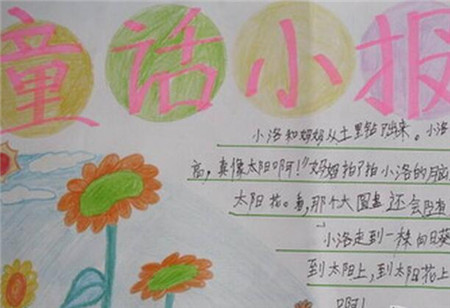 童话小报
小洛和妈妈从土里钻出来。小洛
高,真像太阳啊!"妈妈拍了拍小洛的脑
太阳花。看,那个大圆盘还会
小洛走到一株向日葵
到太阳上,到太阳花上
啊!